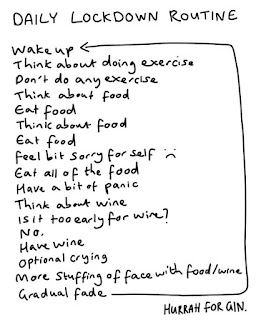 DAILY LOCKDOWN ROUTINE
Wake up
Think about doing exercise
Don't do any exercise
Think about food
Eat food
Think about food
Eat food
Feel bit sorry for self :(
Eat all of the food
Have a bit of panic
Think about wine
Is it too early for wine?
No.
Have wine
Optional crying
More stuffing of face with food/wine
Gradual fade
HURRAH FOR GIN.